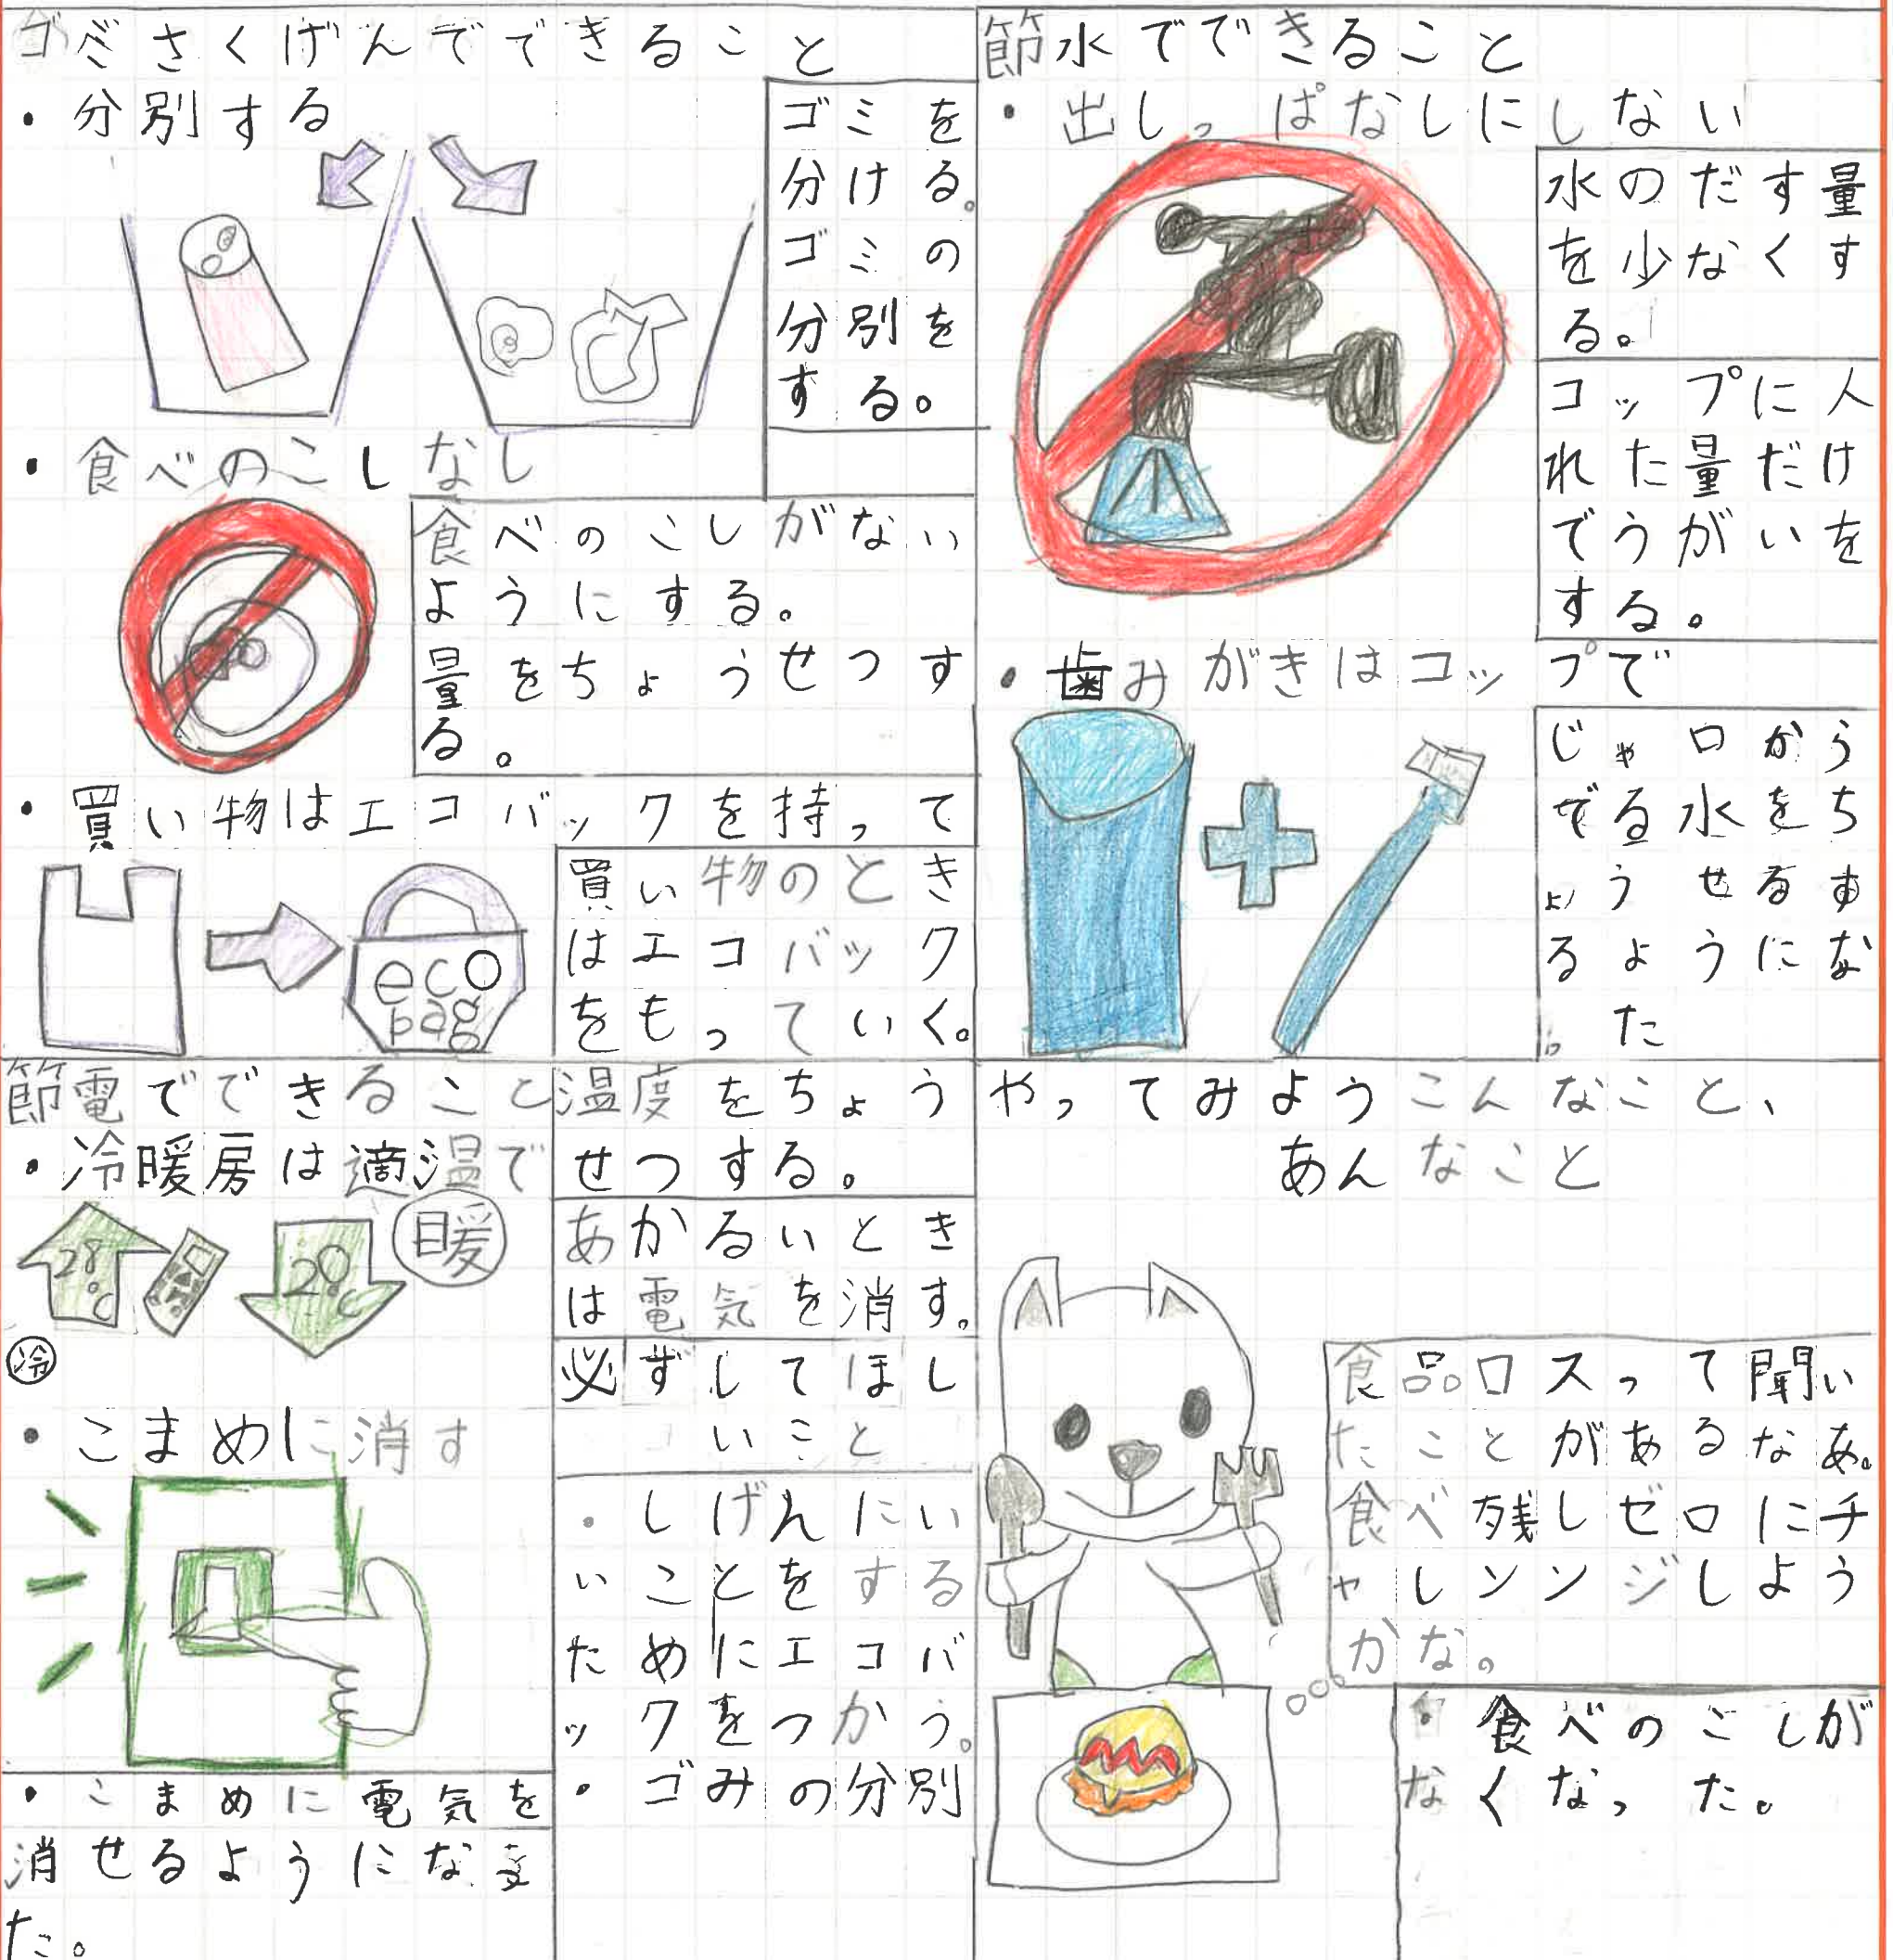 ゴミさくげんでできること
・分別する
ゴミを
分ける。
ゴミの
分別を
する。
・食べのこしなし
食べのこしがない
ようにする。
量をちょうせつす
る。
・買い物はエコバックを持って
eco
bag
買い物のとき
はエコバック
をもっていく。
節水でできること
・出しっぱなしにしない
水のだす量
を少なくす
る。
コップに入
れた量だけ
でうがいを
する。
・歯みがきはコップで
じゃ口から
でる水をち
ょうせるす
るようにな
った。
節電でできること
・冷暖房は適温で
28℃
20℃
暖
冷
・こまめに消す
・こまめに電気を
消せるようになっ
た。
温度をちょう
せつする。
あかるいとき
は電気を消す。
必ずしてほし
いこと
・しげんにい
いことをする
ためにエコバ
ックをつかう。
・ゴみの分別
やってみようこんなこと、
あんなこと
食品ロスって聞い
たことがあるなあ。
食べ残しゼロにチ
ャレンンジしよう
かな。
・食べのこしが
なくなった。